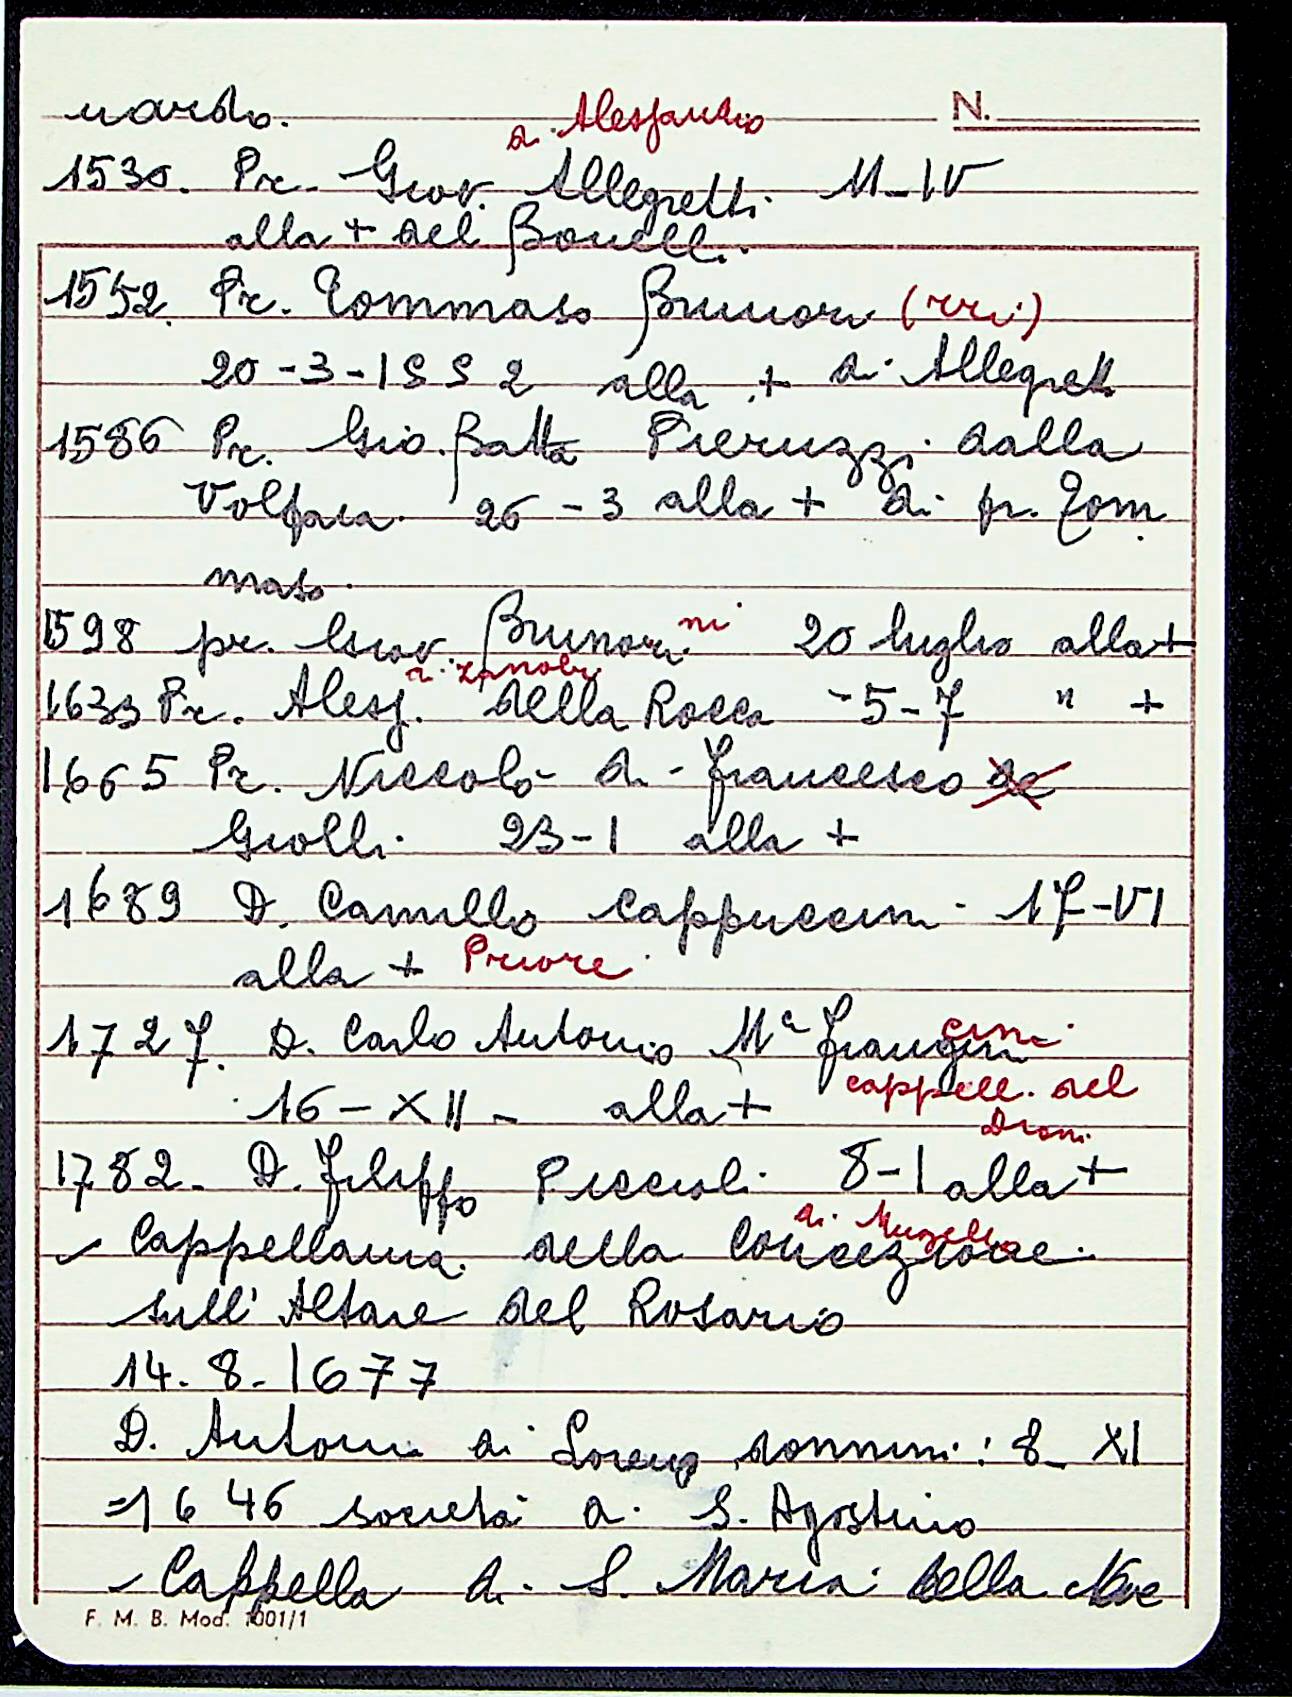 nardo. N.
di Alessandro
1530. Pr. Giov. Allegretti 11-IV
alla + del Bonelli.
1552. Pr. Tommaso Brunori (rri)
20-3-1552 alla + di Allegrett
1586 Pr. Gio. Batta Pieruzzi dalla
Volpaia 26-3 alla + di pr. Tom
maso.
1598 pr. Giov. Brunori ni 20 luglio alla +
di Zanobi
1633 Pr. Aless. della Rocca -5-7 " +
1665 Pr. Niccolò di Francesco de
Giolli. 23-1 alla +
1689 D. Camillo Cappuccini - 17-VI
alla + Priore
1727. D. Carlo Antonio Ma Frangini cini
cappell. del
16-XII- alla +
1782- D. Filippo Piccioli 8-1 alla +
di
- Cappellania della Concezione.
sull' Altare del Rosario
14.8.1677
D. Antonio di Lorenzo Vonnini: 8-XI
=1646 società di S. Agostino
- Cappella di S. Maria della Neve
F. M. B. Mod. 1001/1